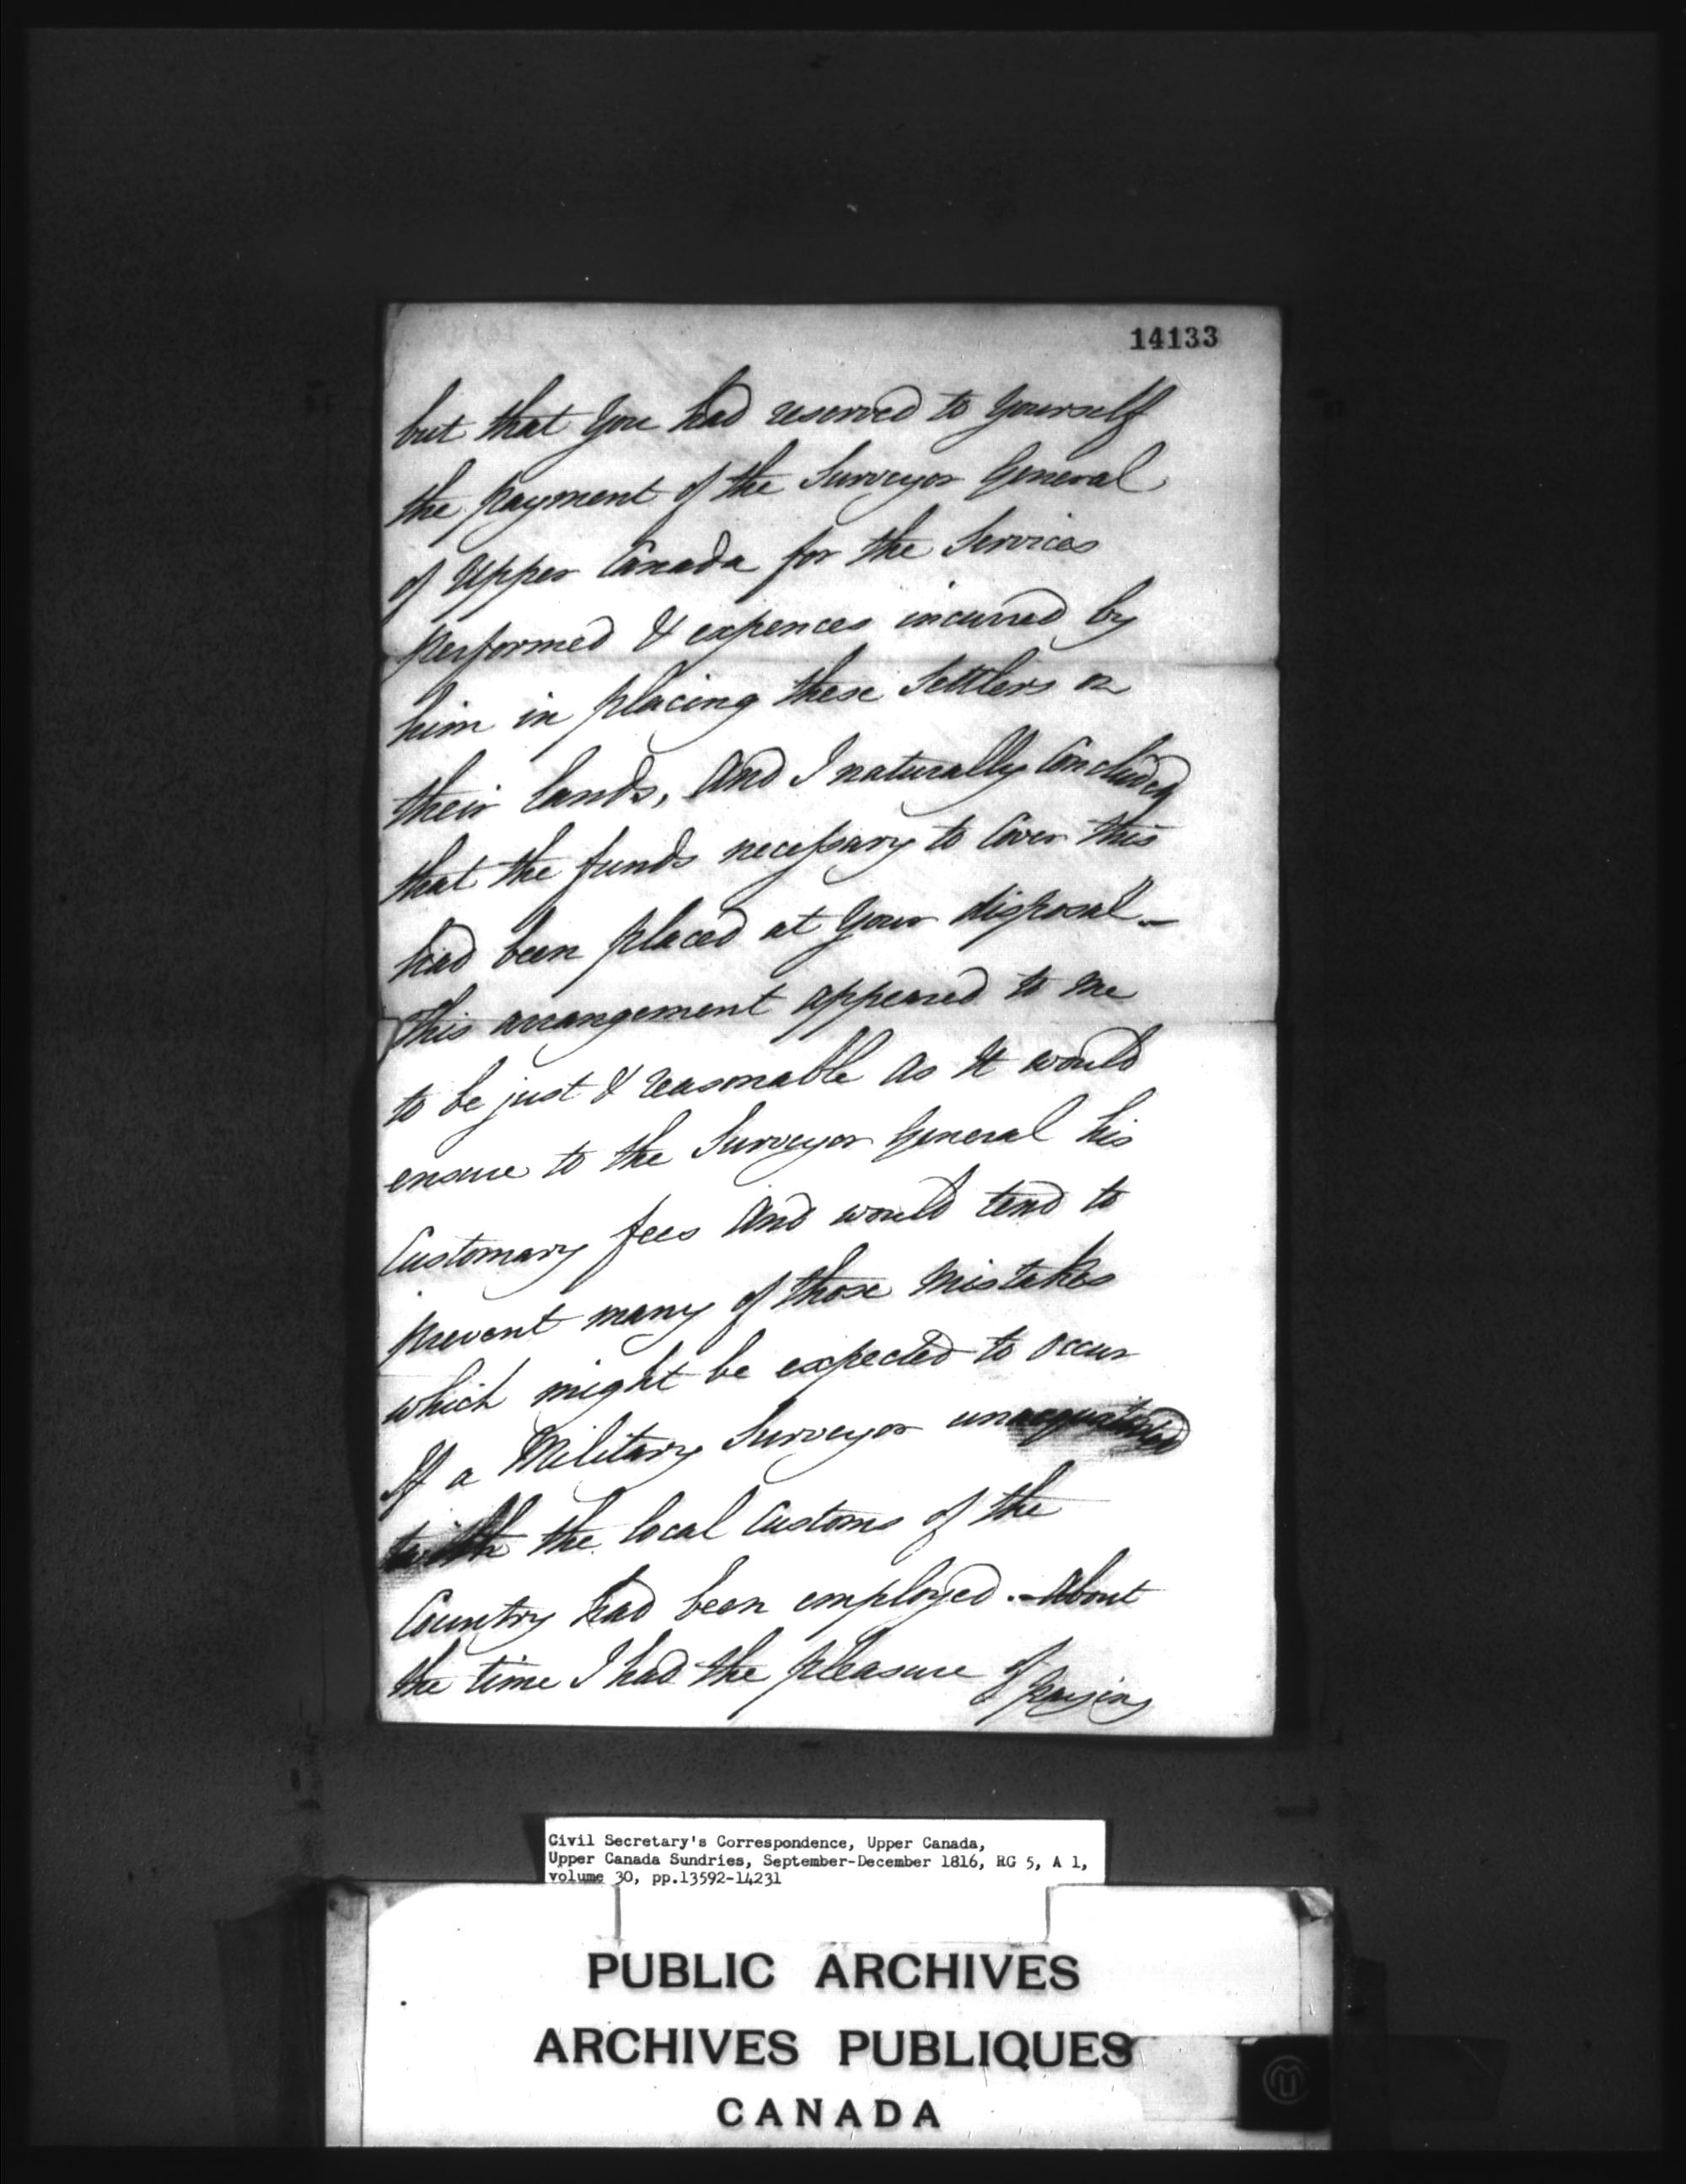 14133
but that You had reserved to Yourself
the payment of the Surveyor General
of Upper Canada for the Services
performed & expences incurred by
him in placing these Settlers on
their lands, And I naturally Concluded
that the funds necessary to Cover this
had been placed at Your disposal –
This arrangement appeared to me
to be just & reasonable as It would
ensure to the Surveyor General his
Customary fees And would tend to
prevent many of those Mistakes
which might be expected to occur
If a Military Surveyor unacquainted
with the local Customs of the
Country had been employed. – About
the time I had the pleasure of paying
Civil Secretary's Correspondence, Upper Canada,
Upper Canada Sundries, September-December 1816, RG 5, A 1,
volume 30, pp.13592-14231
PUBLIC ARCHIVES
ARCHIVES PUBLIQUES
CANADA